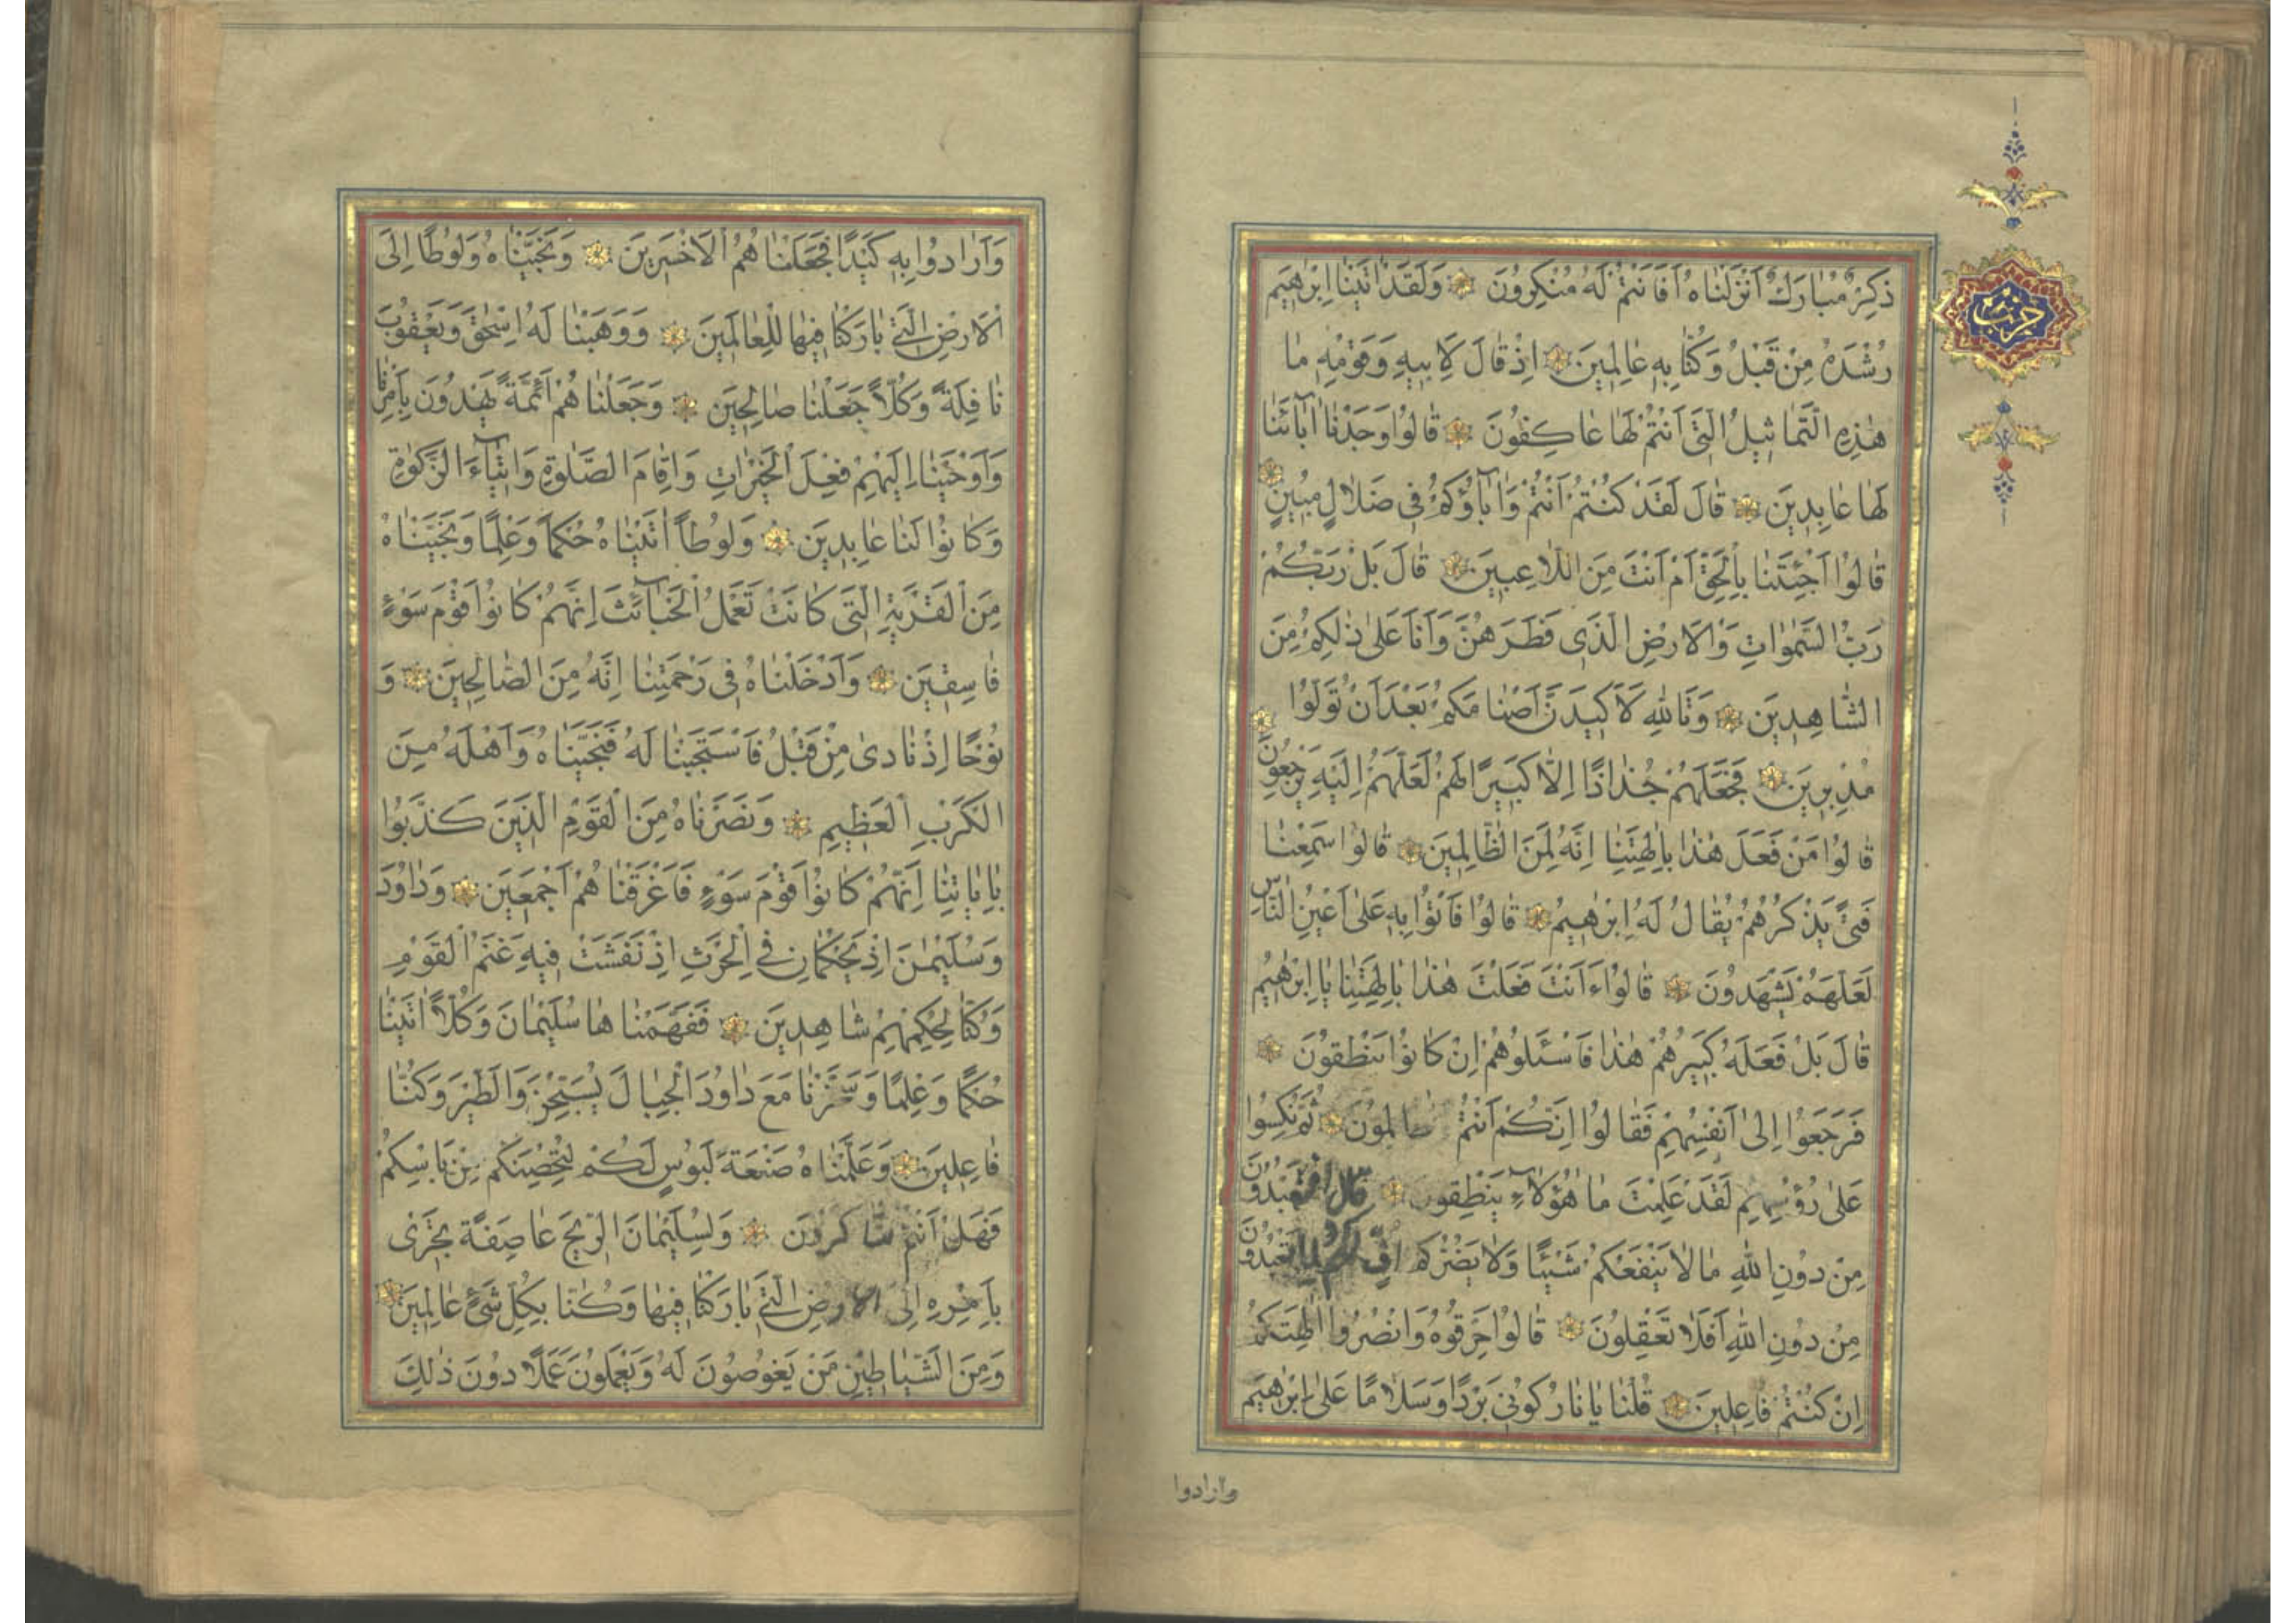 ذِكْرٌ مُبَارَكٌ اَنْزَلْنَاهُ اَفَاَنْتُمْ لَهُ مُنْكِرُونَ وَلَقَدْ اٰتَيْنَا اِبْرٰهِيمَ
حزب
رُشْدَهُ مِنْ قَبْلُ وَكُنَّا بِهِ عَالِمِينَ اِذْ قَالَ لِاَبِيهِ وَقَوْمِهِ مَا
هٰذِهِ التَّمَاثِيلُ الَّتِي اَنْتُمْ لَهَا عَاكِفُونَ قَالُوا وَجَدْنَا اٰبَآئَنَا
لَهَا عَابِدِينَ قَالَ لَقَدْ كُنْتُمْ اَنْتُمْ وَاٰبَآؤُكُمْ فِي ضَلَالٍ مُبِينٍ
قَالُوا اَجِئْتَنَا بِالْحَقِّ اَمْ اَنْتَ مِنَ اللَّاعِبِينَ قَالَ بَلْ رَبُّكُمْ
رَبُّ السَّمٰوَاتِ وَالْاَرْضِ الَّذِي فَطَرَهُنَّ وَاَنَا عَلٰى ذٰلِكُمْ مِنَ
الشَّاهِدِينَ وَتَاللّٰهِ لَاَكِيدَنَّ اَصْنَامَكُمْ بَعْدَ اَنْ تُوَلُّوا
مُدْبِرِينَ فَجَعَلَهُمْ جُذَاذًا اِلَّا كَبِيرًا لَهُمْ لَعَلَّهُمْ اِلَيْهِ يَرْجِعُونَ
قَالُوا مَنْ فَعَلَ هٰذَا بِاٰلِهَتِنَا اِنَّهُ لَمِنَ الظَّالِمِينَ قَالُوا سَمِعْنَا
فَتًى يَذْكُرُهُمْ يُقَالُ لَهُ اِبْرٰهِيمُ قَالُوا فَاْتُوا بِهِ عَلٰى اَعْيُنِ النَّاسِ
لَعَلَّهُمْ يَشْهَدُونَ قَالُوا ءَاَنْتَ فَعَلْتَ هٰذَا بِاٰلِهَتِنَا يَا اِبْرٰهِيمُ
قَالَ بَلْ فَعَلَهُ كَبِيرُهُمْ هٰذَا فَاسْئَلُوهُمْ اِنْ كَانُوا يَنْطِقُونَ
فَرَجَعُوا اِلٰى اَنْفُسِهِمْ فَقَالُوا اِنَّكُمْ اَنْتُمُ الظَّالِمُونَ ثُمَّ نُكِسُوا
عَلٰى رُؤُسِهِمْ لَقَدْ عَلِمْتَ مَا هٰؤُلَآءِ يَنْطِقُونَ قَالَ اَفَتَعْبُدُونَ
مِنْ دُونِ اللّٰهِ مَا لَا يَنْفَعُكُمْ شَيْئًا وَلَا يَضُرُّكُمْ اُفٍّ لَكُمْ وَلِمَا تَعْبُدُونَ
مِنْ دُونِ اللّٰهِ اَفَلَا تَعْقِلُونَ قَالُوا حَرِّقُوهُ وَانْصُرُوا اٰلِهَتَكُمْ
اِنْ كُنْتُمْ فَاعِلِينَ قُلْنَا يَا نَارُ كُونِي بَرْدًا وَسَلَامًا عَلٰى اِبْرٰهِيمَ
وارادوا
وَاَرَادُوا بِهِ كَيْدًا فَجَعَلْنَاهُمُ الْاَخْسَرِينَ وَنَجَّيْنَاهُ وَلُوطًا اِلَى
الْاَرْضِ الَّتِي بَارَكْنَا فِيهَا لِلْعَالَمِينَ وَوَهَبْنَا لَهُ اِسْحٰقَ وَيَعْقُوبَ
نَافِلَةً وَكُلًّا جَعَلْنَا صَالِحِينَ وَجَعَلْنَاهُمْ اَئِمَّةً يَهْدُونَ بِاَمْرِنَا
وَاَوْحَيْنَا اِلَيْهِمْ فِعْلَ الْخَيْرَاتِ وَاِقَامَ الصَّلٰوةِ وَاِيتَآءَ الزَّكٰوةِ
وَكَانُوا لَنَا عَابِدِينَ وَلُوطًا اٰتَيْنَاهُ حُكْمًا وَعِلْمًا وَنَجَّيْنَاهُ
مِنَ الْقَرْيَةِ الَّتِي كَانَتْ تَعْمَلُ الْخَبَآئِثَ اِنَّهُمْ كَانُوا قَوْمَ سَوْءٍ
فَاسِقِينَ وَاَدْخَلْنَاهُ فِي رَحْمَتِنَا اِنَّهُ مِنَ الصَّالِحِينَ وَ
نُوحًا اِذْ نَادٰى مِنْ قَبْلُ فَاسْتَجَبْنَا لَهُ فَنَجَّيْنَاهُ وَاَهْلَهُ مِنَ
الْكَرْبِ الْعَظِيمِ وَنَصَرْنَاهُ مِنَ الْقَوْمِ الَّذِينَ كَذَّبُوا
بِاٰيَاتِنَا اِنَّهُمْ كَانُوا قَوْمَ سَوْءٍ فَاَغْرَقْنَاهُمْ اَجْمَعِينَ وَدَاوُدَ
وَسُلَيْمٰنَ اِذْ يَحْكُمَانِ فِي الْحَرْثِ اِذْ نَفَشَتْ فِيهِ غَنَمُ الْقَوْمِ
وَكُنَّا لِحُكْمِهِمْ شَاهِدِينَ فَفَهَّمْنَاهَا سُلَيْمَانَ وَكُلًّا اٰتَيْنَا
حُكْمًا وَعِلْمًا وَسَخَّرْنَا مَعَ دَاوُدَ الْجِبَالَ يُسَبِّحْنَ وَالطَّيْرَ وَكُنَّا
فَاعِلِينَ وَعَلَّمْنَاهُ صَنْعَةَ لَبُوسٍ لَكُمْ لِتُحْصِنَكُمْ مِنْ بَاْسِكُمْ
فَهَلْ اَنْتُمْ شَاكِرُونَ وَلِسُلَيْمَانَ الرِّيحَ عَاصِفَةً تَجْرِي
بِاَمْرِهِ اِلَى الْاَرْضِ الَّتِي بَارَكْنَا فِيهَا وَكُنَّا بِكُلِّ شَيْءٍ عَالِمِينَ
وَمِنَ الشَّيَاطِينِ مَنْ يَغُوصُونَ لَهُ وَيَعْمَلُونَ عَمَلًا دُونَ ذٰلِكَ